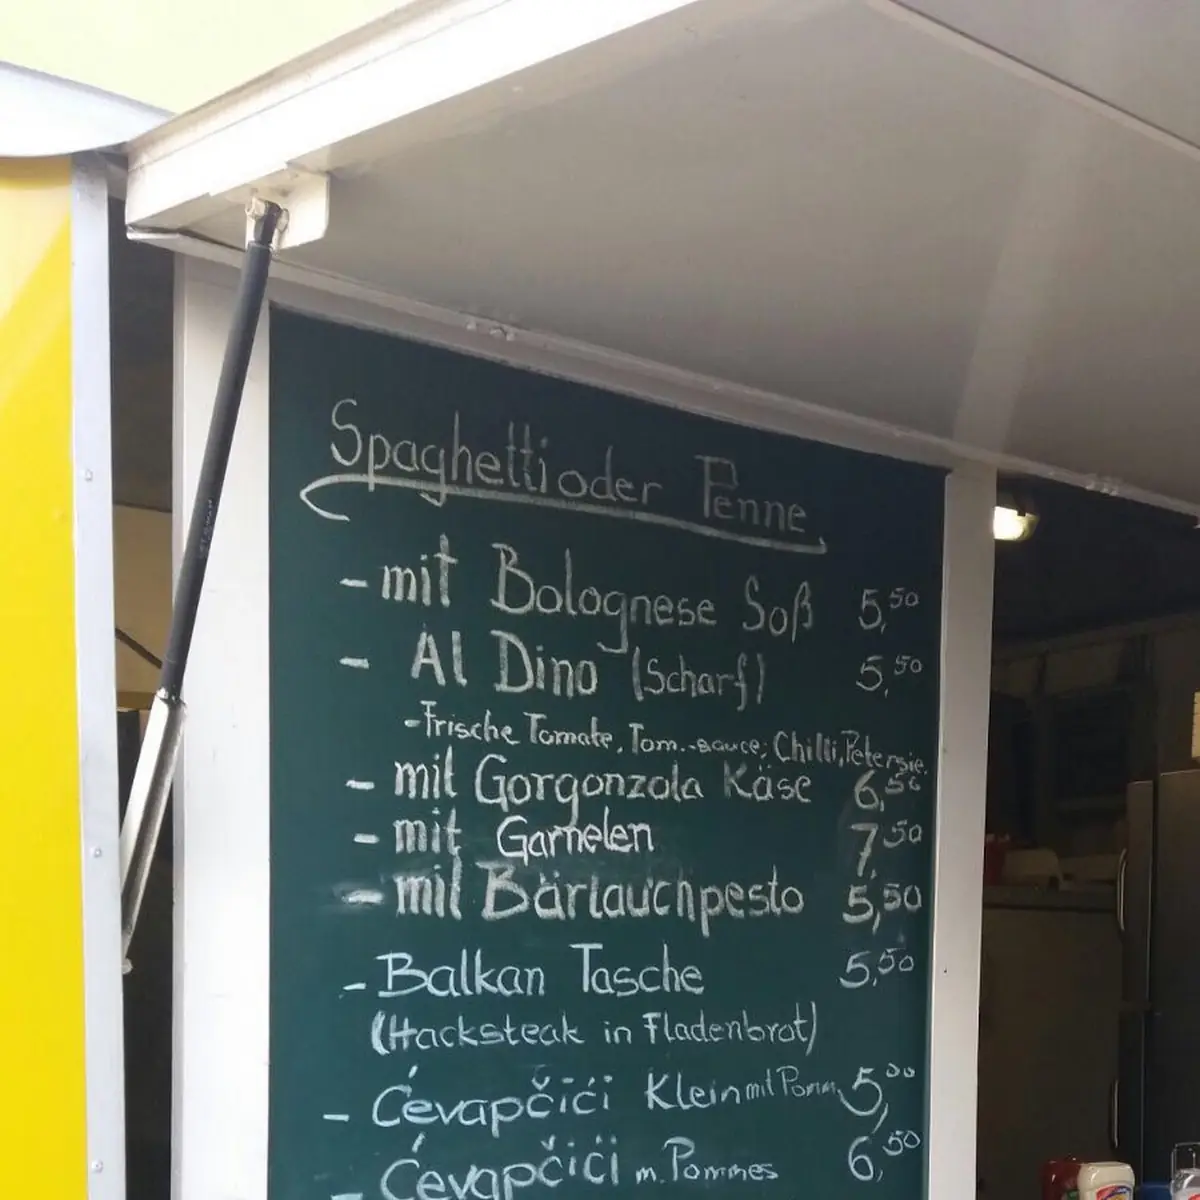 Spaghetti oder Penne
- mit Bolognese Soß 5,50
- Al Dino (Scharf) 5,50
- Frische Tomate, Tom.-sauce, Chilli, Petersie.
- mit Gorgonzola Käse 6,50
- mit Garnelen 7,50
- mit Bärlauchpesto 5,50
- Balkan Tasche 5,50
(Hacksteak in Fladenbrot)
- Ćevapčići Klein mit Pomm. 5,00
- Ćevapčići m. Pommes 6,50